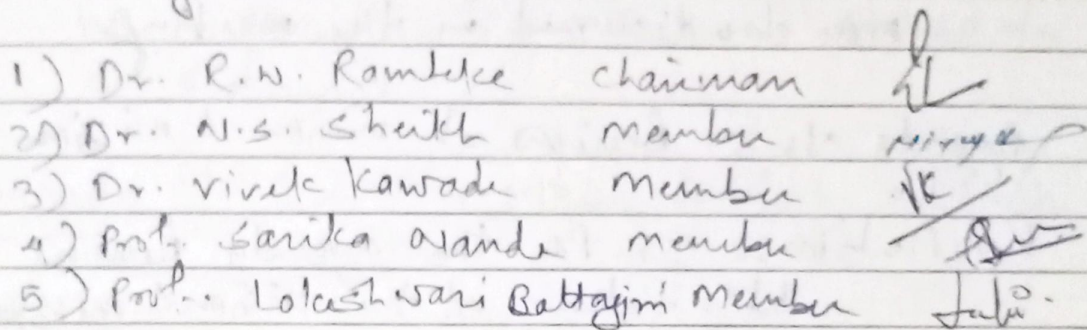 1) Dr. R.W. Ramteke Chairman
2) Dr. N.S. Sheikh Member
3) Dr. Vivek Kawade Member
4) Prof. Sarika Nande Member
5) Prof.. Lokeshwari Member